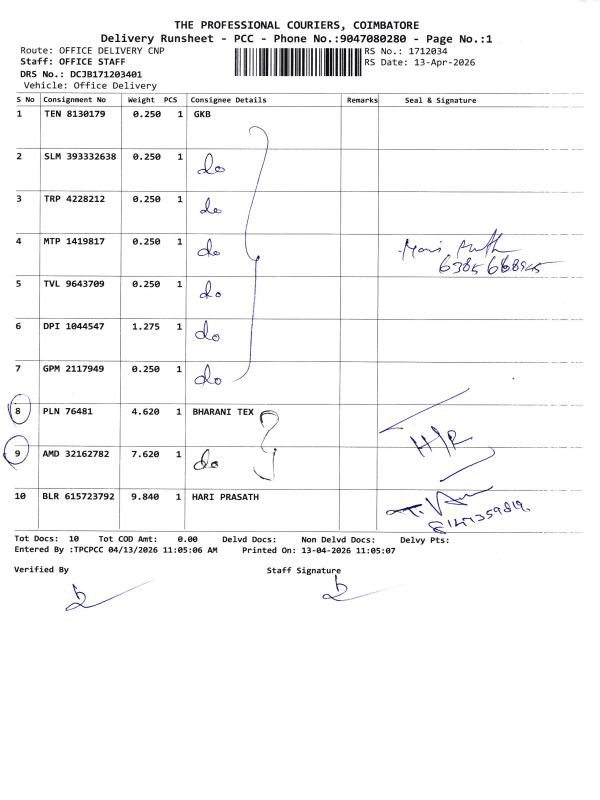 THE PROFESSIONAL COURIERS, COIMBATORE
Delivery Runsheet - PCC - Phone No.:9047080280 - Page No.:1
Route: OFFICE DELIVERY CNP
Staff: OFFICE STAFF
DRS No.: DCJB171203401
Vehicle: Office Delivery
RS No.: 1712034
RS Date: 13-Apr-2026
S No Consignment No Weight PCS Consignee Details Remarks Seal & Signature
1 TEN 8130179 0.250 1 GKB
2 SLM 393332638 0.250 1 do
3 TRP 4228212 0.250 1 do
4 MTP 1419817 0.250 1 do
5 TVL 9643709 0.250 1 do
6 DPI 1044547 1.275 1 do
7 GPM 2117949 0.250 1 do
8 PLN 76481 4.620 1 BHARANI TEX
H/R
9 AMD 32162782 7.620 1 do
10 BLR 615723792 9.840 1 HARI PRASATH
Tot Docs: 10 Tot COD Amt: 0.00 Delvd Docs: Non Delvd Docs: Delvy Pts:
Entered By :TPCPCC 04/13/2026 11:05:06 AM Printed On: 13-04-2026 11:05:07
Verified By Staff Signature